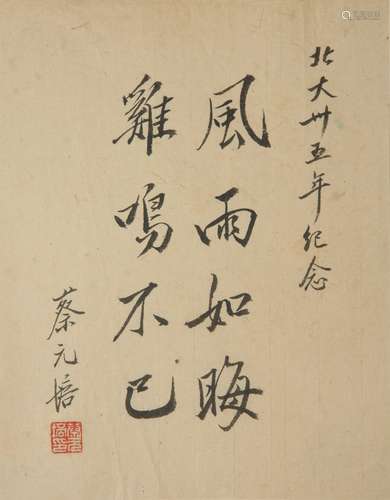 北大卅五年纪念
風雨如晦
雞鳴不已
蔡元培